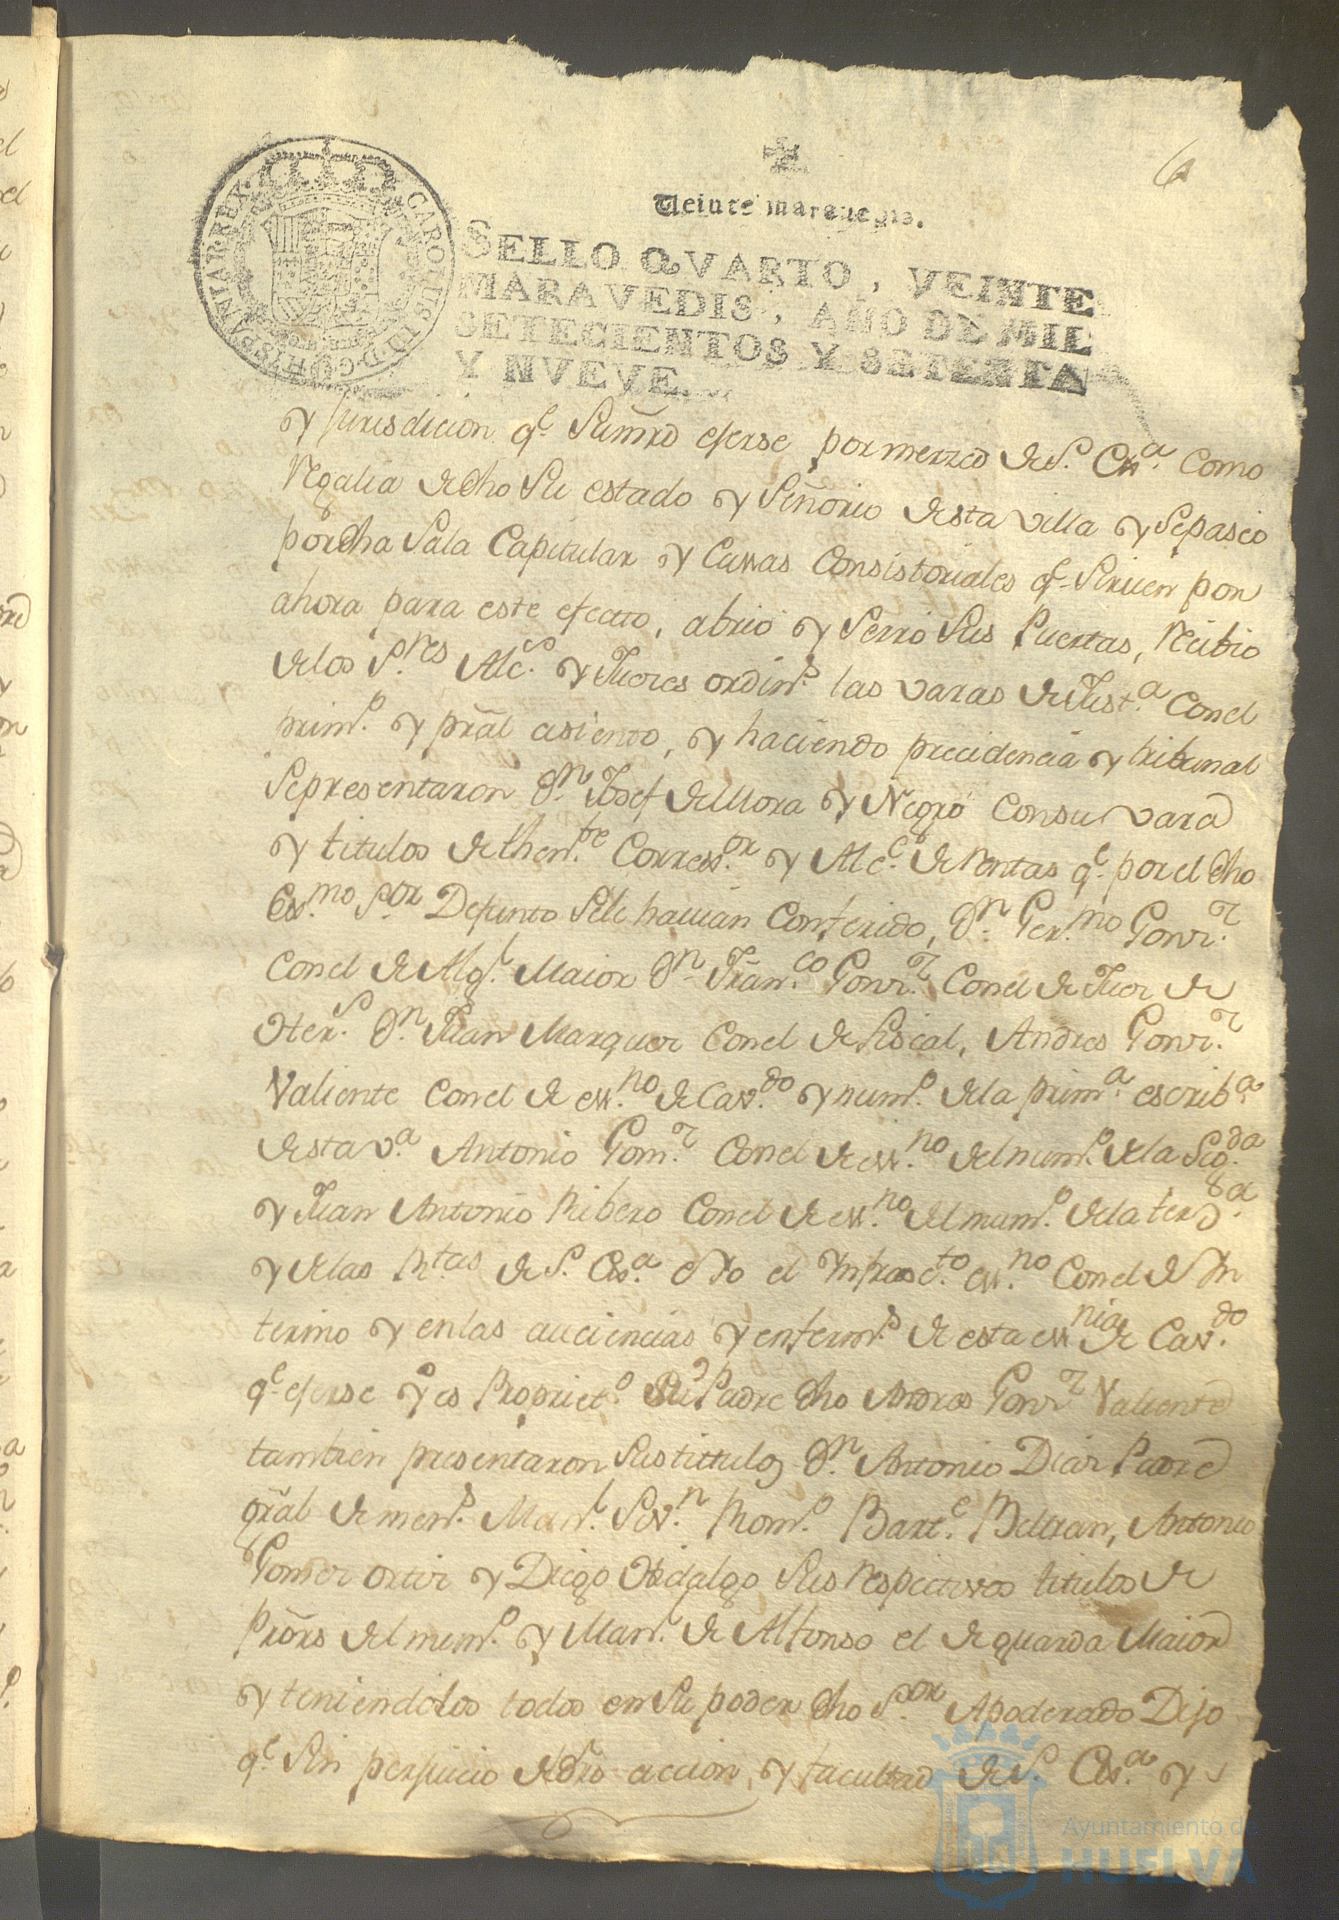 6
Veinte maravedis.
SELLO QVARTO, VEINTE
MARAVEDIS, AÑO DE MIL
SETECIENTOS Y SETENTA
Y NVEVE.
CAROLUS III D. G. HISPANIAR. REX
y jurisdicion q.e Sumrd eserse por merzed de S. Ex.a como
Regalia de dho Su estado y Señorio desta villa y Sepaseo
por dha Sala Capitular y Cassas Consistoriales q.e Siruen por
ahora para este efecto, abrio y Serro Sus Puertas, Recibio
de los S.res Alc.s y Jueces ordin.s las varas de Just.a Con el
prim.o y pral asiento, y haciendo precidencia y tribunal
Sepresentaron D.n Josef de Mora y Negro Consu vara
y titulos de then.te Corres.or y Alc.e de Rentas q.e por el dho
Ex.mo S.or Defunto Sele hauian Conferido, D.n Ger.mo Gonz.z
Con el de Alg.l Maior D.n Fran.co Gonz.z Con el de Juez de
Hter.s D.n Juan Marquez Con el de Fiscal, Andres Gonz.z
Valiente Con el de ess.no de Cav.do y num.o de la prim.a escrib.a
desta v.a Antonio Gom.z Con el de ess.no del num.o de la Seg.da
y Juan Antonio Ribero Con el de ess.no del num.o de la terc.a
y de las R.tas de S. Ex.a e Yo el Infrasc.to ess.no Con el de In
terino y en las auciencias y enferm.s de esta ess.nia de Cav.do
q.e eserse y es Propriet.o Su Padre dho Andres Gonz.z Valiente
tambien presentaron Sus tittulos D.n Antonio Diaz Padre
gral de men.s Man.l Sev.n Rom.o Bart.e Beltran, Antonio
Gomez ortiz y Diego Hidalgo Sus Respectivos titulos de
Prors del num.o y Man.l de Alfonso el de guarda Maior
y teniendolos todos en Su poder dho S.or Apoderado Dijo
q.e Sin perjuicio del dro accion, y facultad de S. Ex.a y
Ayuntamiento de
HUELVA